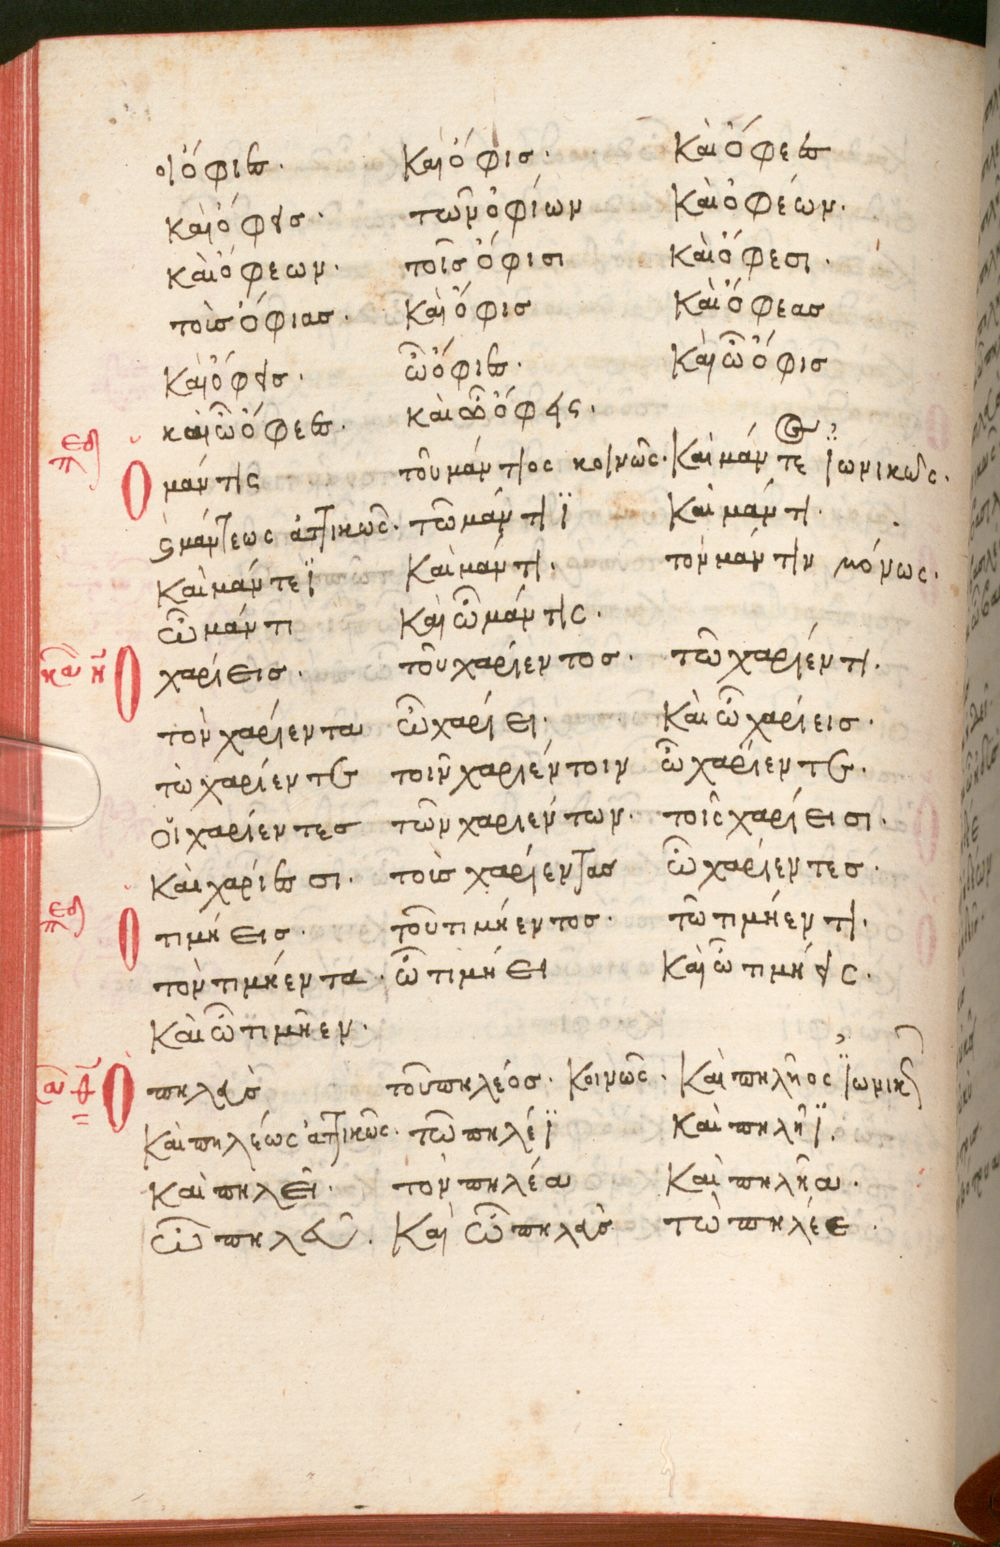 οἱ ὄφιες. καὶ ὄφις. καὶ ὄφεες
καὶ ὄφεις. τῶν ὀφίων καὶ ὀφεών.
καὶ ὄφεων. τοῖς ὄφισι καὶ ὄφεσι.
τοὺς ὄφιας. καὶ ὄφις καὶ ὄφεας
καὶ ὄφεις. ὦ ὄφιες. καὶ ὦ ὄφις
καὶ ὦ ὄφεες. καὶ ὦ ὄφεις.
Ὁ μάντις τοῦ μάντιος κοινῶς. καὶ μάντεος ἰωνικῶς.
μάντεως ἀττικῶς. τῶ μάντιϊ καὶ μάντι.
καὶ μάντεϊ καὶ μάντι. τὸν μάντιν μόνως.
ὦ μάντι καὶ ὦ μάντις.
Ὁ χαρίεις. τοῦ χαρίεντος. τῶ χαρίεντι.
τὸν χαρίεντα ὦ χαρίει. καὶ ὦ χαρίεις.
τὼ χαρίεντε τοῖν χαριέντοιν ὦ χαρίεντε.
οἱ χαρίεντες τῶν χαριέντων. τοῖς χαρίεισι.
καὶ χαρίεσι. τοὺς χαρίεντας ὦ χαρίεντες.
Ὁ τιμήεις. τοῦ τιμήεντος. τῶ τιμήεντι.
τὸν τιμήεντα. ὦ τιμήει καὶ ὦ τιμήεις.
καὶ ὦ τιμῆεν.
Ὁ πηλεὺς τοῦ πηλέος. κοινῶς. καὶ πηλῆος ἰωνικῶς
καὶ πηλέως ἀττικῶς. τῶ πηλέϊ καὶ πηλῆϊ.
καὶ πηλεῖ. τὸν πηλέα καὶ πηλῆα.
ὦ πηλεῦ. καὶ ὦ πηλεὺς τὼ πηλέε.